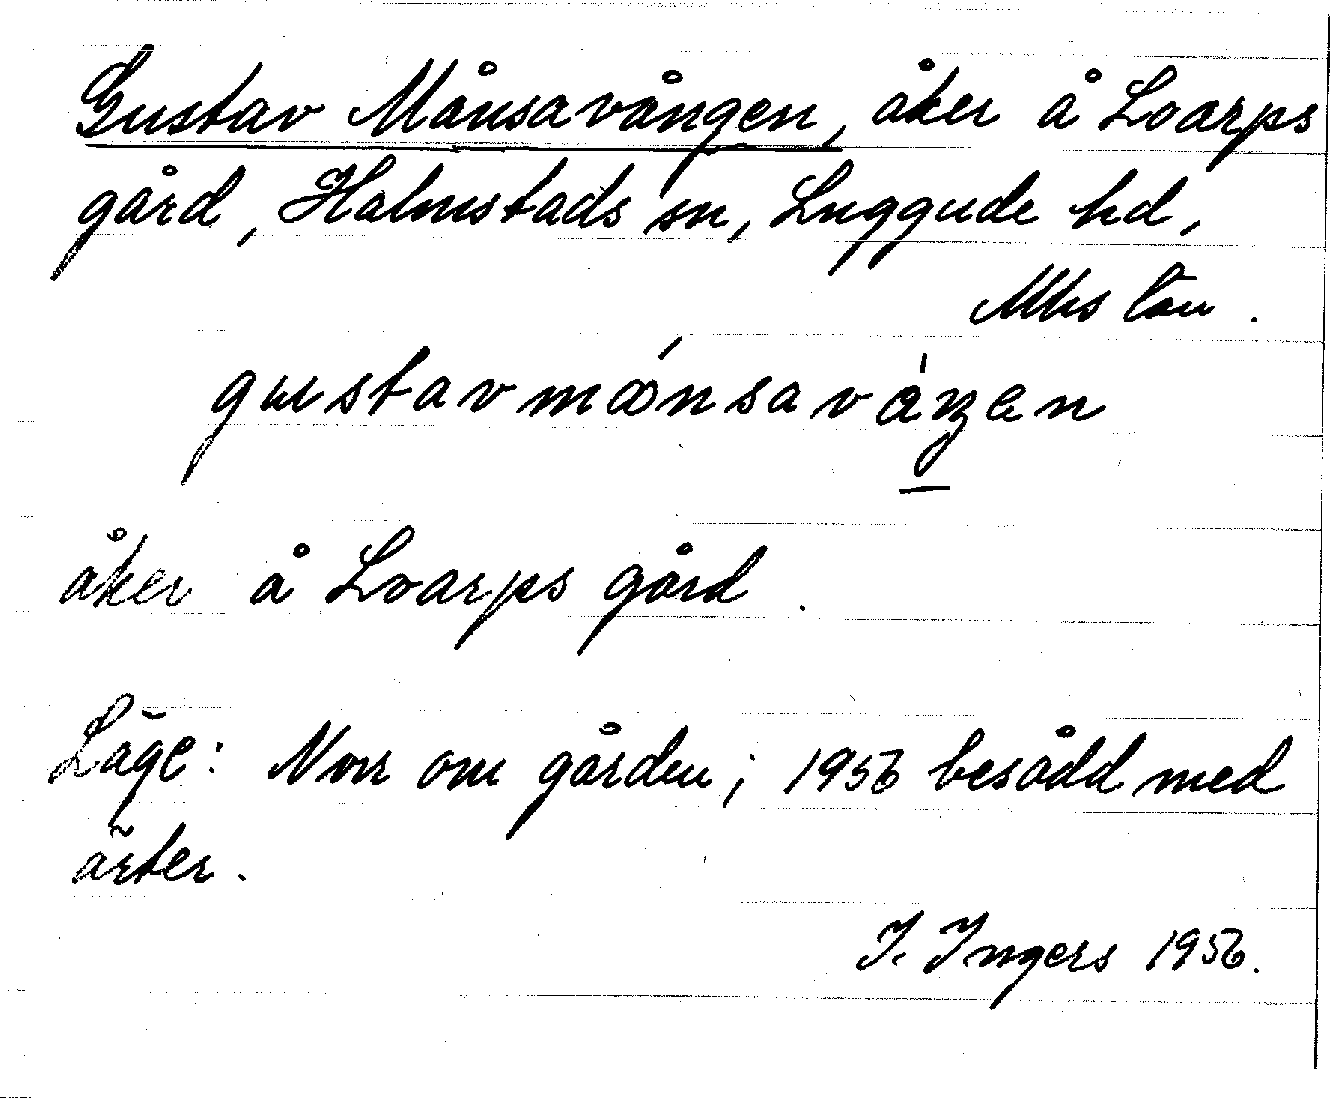 Gustav Månsavången, åker å Loarps
gård, Halmstads sn, Luggude hd,
Mhs län.
gustavmánsaváŋen
åker å Loarps gård.
Läge: Norr om gården; 1956 besådd med
ärter.
I. Ingers 1956.